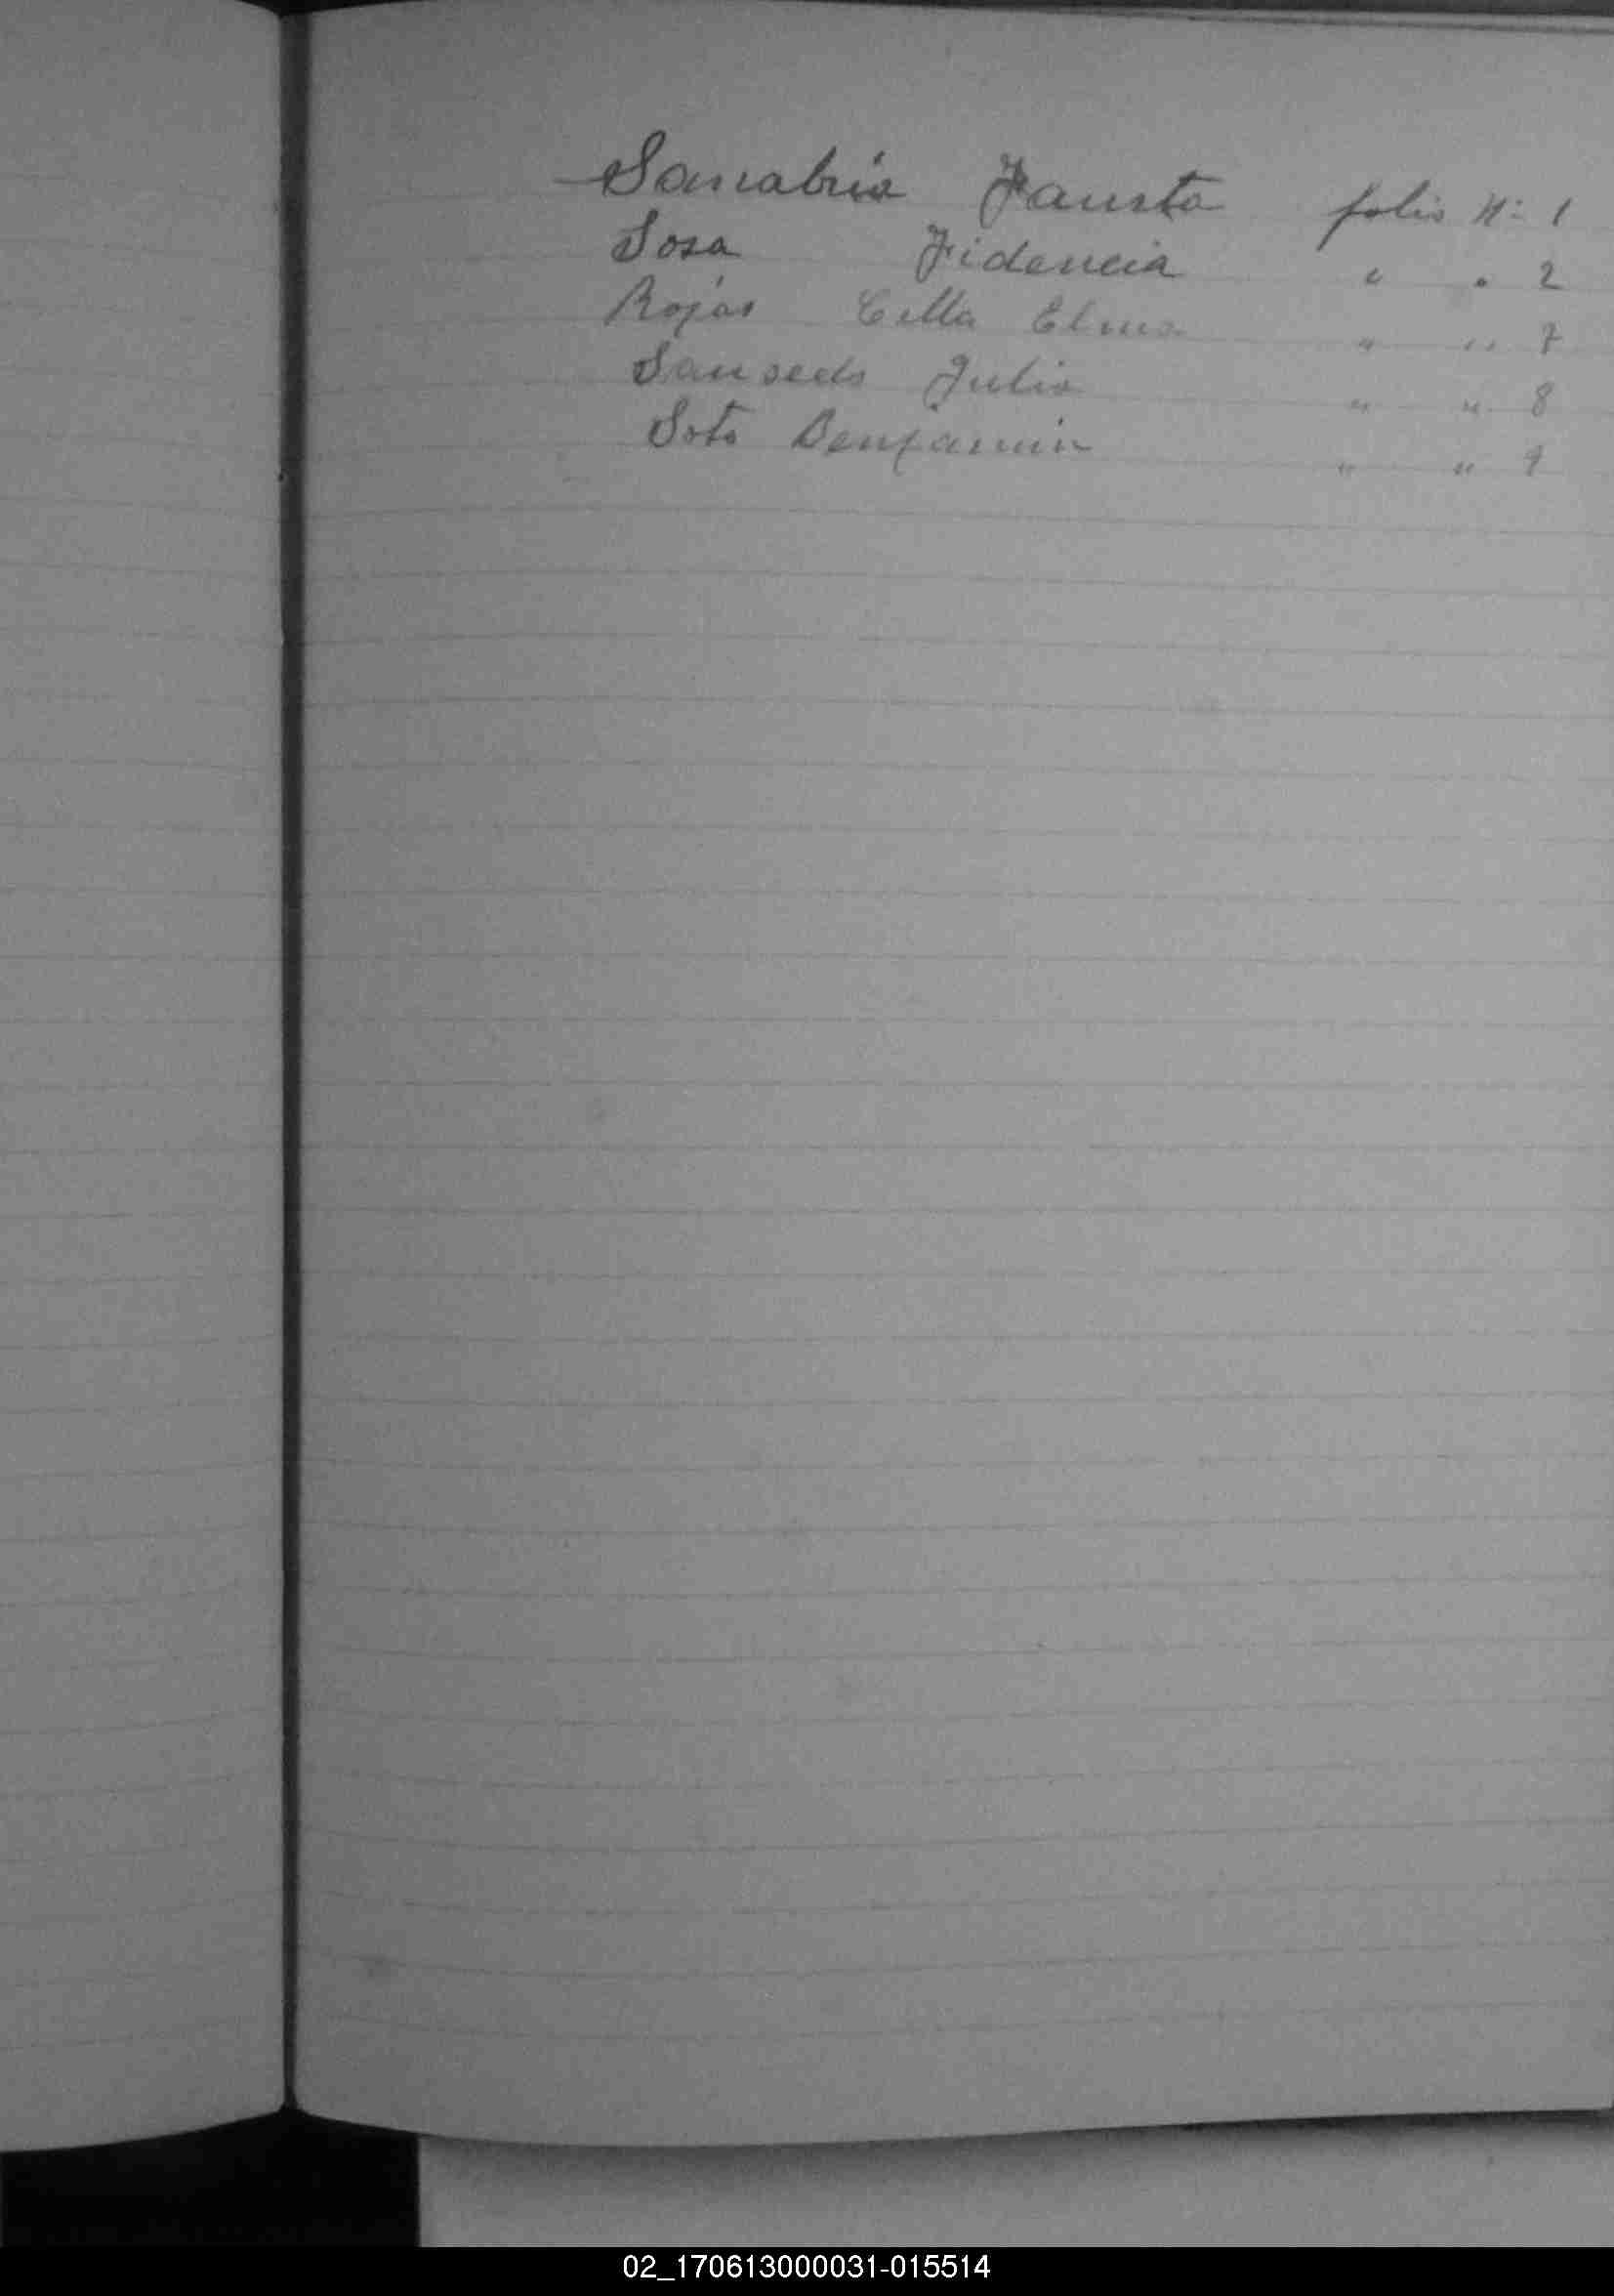 Sanabria Fausto folio Nº 1
Sosa Fidencia " " 2
Rojas Celia " " 7
Julio " " 8
Soto Benjamin " " 9
02_170613000031-015514